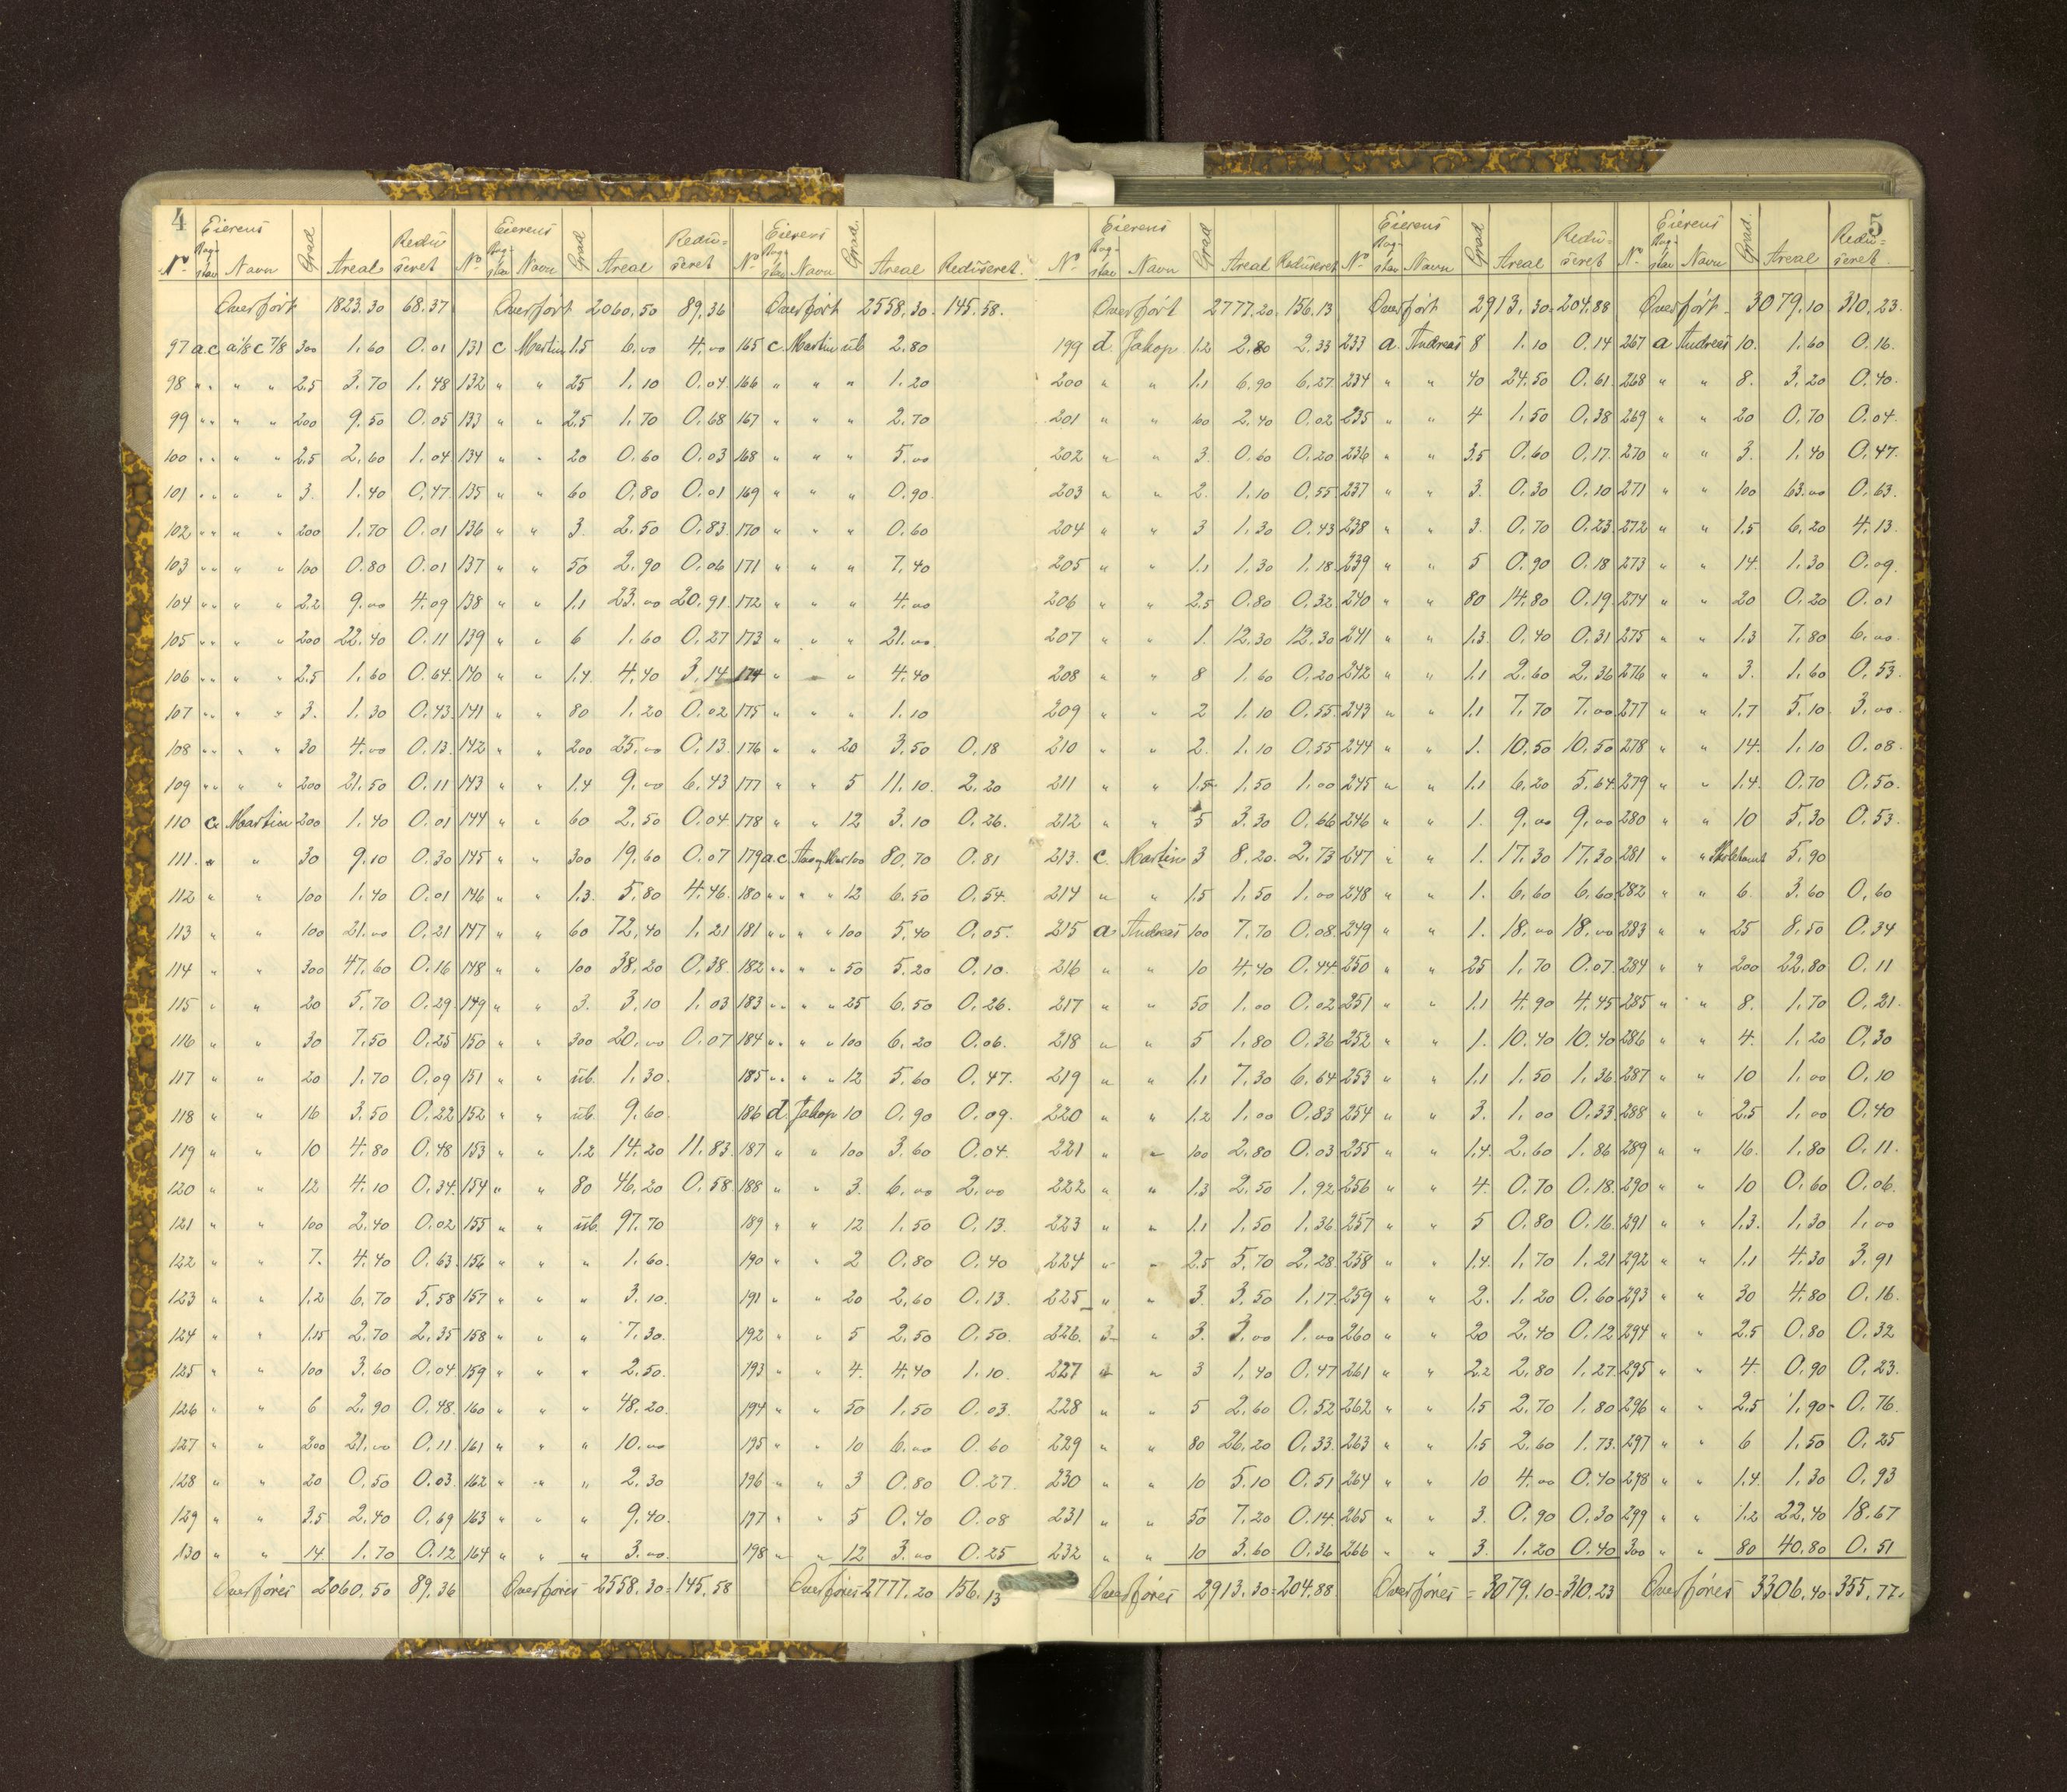 4
5
Eierens Eierens Eierens Eierens Eierens Eierens
No Bog-stav Navn Grad Areal Reduseret No Bog-stav Navn Grad Areal Redu=seret No Bog-stav Navn Grad Areal Reduseret. No Bog-stav Navn Grad Areal Reduseret No Bog-stav Navn Grad Areal Redu=seret No Bog-stav Navn Grad. Areal Redu=seret.
Overført 1823.30 68.37 Overført 2060.50 89.36 Overført 2558.30. 145.58. Overført 2777.20. 156.13 Overført 2913.30= 204.88 Overført- 3079.10 310.23.
97 a.c a 1/8 c 7/8 300 1.60 0.01 131 c Martin 1.5 6.00 4.00 165 c. Martin üb 2.80 199 d. Jakop 1.2 2.80 2.33 233 a. Andreas 8 1.10 0.14 267 a Andreas 10. 1.60 0.16.
98 " " " " 2.5 3.70 1.48 132 " " 25 1.10 0.04 166 " " " 1.20 200 " " 1.1 6.90 6.27 234 " " 40 24.50 0.61 268 " " 8. 3.20 0.40.
99 " " " " 200 9.50 0.05 133 " " 2.5 1.70 0.68 167 " " " 2.70 201 " " 60 2.40 0.02 235 " " 4 1.50 0.38 269 " " 20 0.70 0.04.
100 " " " " 2.5 2.60 1.04 134 " " 20 0.60 0.03 168 " " " 5.00 202 " " 3. 0.60 0.20 236 " " 3.5 0.60 0.17 270 " " 3. 1.40 0.47.
101 " " " " 3. 1.40 0.47 135 " " 60 0.80 0.01 169 " " " 0.90 203 " " 2. 1.10 0.55 237 " " 3. 0.30 0.10 271 " " 100 63.00 0.63.
102 " " " " 200 1.70 0.01 136 " " 3. 2.50 0.83 170 " " " 0.60 204 " " 3 1.30 0.43 238 " " 3. 0.70 0.23 272 " " 1.5 6.20 4.13.
103 " " " " 100 0.80 0.01 137 " " 50 2.90 0.06 171 " " " 7.40 205 " " 1.1 1.30 1.18 239 " " 5 0.90 0.18 273 " " 14. 1.30 0.09.
104 " " " " 2.2 9.00 4.09 138 " " 1.1 23.00 20.91 172 " " " 4.00 206 " " 2.5 0.80 0.32 240 " " 80 14.80 0.19 274 " " 20 0.20 0.01
105 " " " " 200 22.40 0.11 139 " " 6 1.60 0.27 173 " " " 21.00 207 " " 1. 12.30 12.30 241 " " 1.3 0.40 0.31 275 " " 1.3 7.80 6.00
106 " " " " 2.5 1.60 0.64 140 " " 1.4 4.40 3.14 174 " " " 4.40 208 " " 8 1.60 0.20 242 " " 1.1 2.60 2.36 276 " " 3. 1.60 0.53.
107 " " " " 3. 1.30 0.43 141 " " 80 1.20 0.02 175 " " " 1.10 209 " " 2 1.10 0.55 243 " " 1.1 7.70 7.00 277 " " 1.7 5.10 3.00.
108 " " " " 30 4.00 0.13 142 " " 200 25.00 0.13 176 " " 20 3.50 0.18 210 " " 2. 1.10 0.55 244 " " 1. 10.50 10.50 278 " " 14. 1.10 0.08.
109 " " " " 200 21.50 0.11 143 " " 1.4 9.00 6.43 177 " " 5 11.10. 2.20 211 " " 1.5 1.50 1.00 245 " " 1.1 6.20 5.64 279 " " 1.4. 0.70 0.50.
110 c Martin 200 1.40 0.01 144 " " 60 2.50 0.04 178 " " 12 3.10 0.26. 212 " " 5 3.30 0.66 246 " " 1. 9.00 9.00 280 " " 10 5.30 0.53.
111. " " 30 9.10 0.30 145 " " 300 19.60 0.07 179 a.c. 100 80.70 0.81 213. c. Martin 3 8.20. 2.73 247 " " 1. 17.30 17.30 281 " " 5.90
112 " " 100 1.40 0.01 146 " " 1.3. 5.80 4.46. 180 " " " " 12 6.50 0.54. 214 " " 1.5 1.50 1.00 248 " " 1. 6.60 6.60 282 " " 6. 3.60 0.60
113 " " 100 21.00 0.21 147 " " 60 72.40 1.21 181 " " " " 100 5.40 0.05. 215 a Andreas 100 7.70 0.08 249 " " 1. 18.00 18.00 283 " " 25 8.50 0.34
114 " " 300 47.60 0.16 148 " " 100 38.20 0.38 182 " " " " 50 5.20 0.10. 216 " " 10 4.40 0.44 250 " " 25 1.70 0.07 284 " " 200 22.80 0.11
115 " " 20 5.70 0.29 149 " " 3. 3.10 1.03 183 " " " " 25 6.50 0.26. 217 " " 50 1.00 0.02 251 " " 1.1 4.90 4.45 285 " " 8. 1.70 0.21.
116 " " 30 7.50 0.25 150 " " 300 20.00 0.07 184 " " " " 100 6.20 0.06. 218 " " 5 1.80 0.36 252 " " 1. 10.40 10.40 286 " " 4. 1.20 0.30
117 " " 20 1.70 0.09 151 " " üb. 1.30. 185 " " " " 12 5.60 0.47. 219 " " 1.1 7.30 6.64 253 " " 1.1 1.50 1.36 287 " " 10 1.00 0.10
118 " " 16 3.50 0.22 152 " " üb. 9.60. 186 d. Jakop 10 0.90 0.09. 220 " " 1.2 1.00 0.83 254 " " 3. 1.00 0.33 288 " " 2.5 1.00 0.40
119 " " 10 4.80 0.48 153 " " 1.2 14.20 11.83 187 " " 100 3.60 0.04. 221 " " 100 2.80 0.03 255 " " 1.4. 2.60 1.86 289 " " 16. 1.80 0.11.
120 " " 12 4.10 0.34 154 " " 80 46.20 0.58 188 " " 3. 6.00 2.00 222 " " 1.3 2.50 1.92 256 " " 4. 0.70 0.18. 290 " " 10 0.60 0.06.
121 " " 100 2.40 0.02 155 " " üb. 97.70 189 " " 12 1.50 0.13. 223 " " 1.1 1.50 1.36 257 " " 5 0.80 0.16. 291 " " 1.3. 1.30 1.00
122 " " 7. 4.40 0.63 156 " " " 1.60. 190 " " 2 0.80 0.40 224 " " 2.5 5.70 2.28 258 " " 1.4. 1.70 1.21 292 " " 1.1 4.30 3.91
123 " " 1.2 6.70 5.58 157 " " " 3.10. 191 " " 20 2.60 0.13. 225 " " 3. 3.50 1.17 259 " " 2. 1.20 0.60 293 " " 30 4.80 0.16.
124 " " 1.15 2.70 2.35 158 " " " 7.30. 192 " " 5 2.50 0.50. 226. " 3. 3.00 1.00 260 " " 20 2.40 0.12 294 " " 2.5 0.80 0.32
125 " " 100 3.60 0.04 159 " " " 2.50. 193 " " 4. 4.40 1.10. 227 " 3 1.40 0.47 261 " " 2.2 2.80 1.27 295 " " 4. 0.90 0.23.
126 " " 6 2.90 0.48. 160 " " " 48.20. 194 " " 50 1.50 0.03. 228 " " 5 2.60 0.52 262 " " 1.5 2.70 1.80 296 " " 2.5 1.90- 0.76.
127 " " 200 21.00 0.11 161 " " " 10.00 195 " " 10 6.00 0.60 229 " " 80 26.20 0.33 263 " " 1.5 2.60 1.73 297 " " 6 1.50 0.25
128 " " 20 0.50 0.03 162 " " " 2.30 196 " " 3 0.80 0.27. 230 " " 10 5.10 0.51 264 " " 10 4.00 0.40 298 " " 1.4. 1.30 0.93
129 " " 3.5 2.40 0.69 163 " " " 9.40. 197 " " 5 0.40 0.08 231 " " 50 7.20 0.14. 265 " " 3. 0.90 0.30 299 " " 1.2 22.40 18.67
130 " " 14. 1.70 0.12 164 " " " 3.00. 198 " " 12 3.00 0.25 232 " " 10 3.60 0.36 266 " " 3. 1.20 0.40 300 " " 80 40.80 0.51
Overføres 2060.50 89.36 Overføres- 2558.30=145.58 Overføres 2777.20 156.13 Overføres 2913.30=204.88. Overføres = 3079.10=310.23 Overføres 3306.40=355.77.